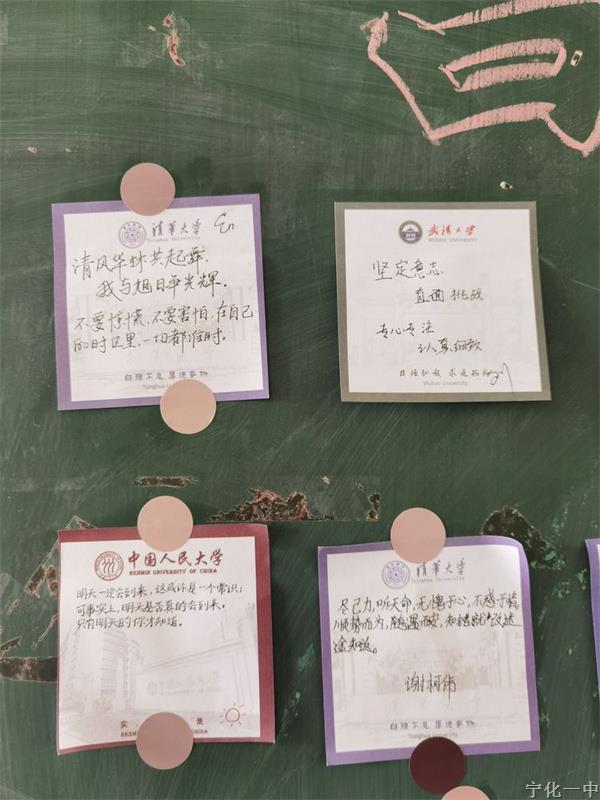 清华大学
Tsinghua University
清风华林共起舞,
我与旭日争光辉.
不要惊慌,不要害怕,在自己
的时区里,一切都准时.
自强不息 厚德载物
Tsinghua University
武汉大学
WUHAN UNIVERSITY
坚定意志
直面 挑战
专心专注
认真细致
自强弘毅 求是拓新
Wuhan University
中国人民大学
RENMIN UNIVERSITY OF CHINA
明天一定会到来,这或许是一个常识;
可事实上,明天是否真的会到来,
只有明天的你才知道。
中国人民大学
实
RENMIN
CHINA
清华大学
Tsinghua University
尽己力,听天命,无愧于心,不惑于情
顺势而为,随遇而安,知错就改,迷
途知返。
谢柯伟
自强不息 厚德载物
Tsinghua University
宁化一中